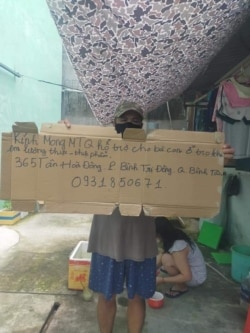 Kính Mong MTQ hỗ trợ cho bà con ở trọ
lương thực - Nhà phân
365 Tân Hoà Đông. P Bình Trị Đông Q Bình Tân
0931850671